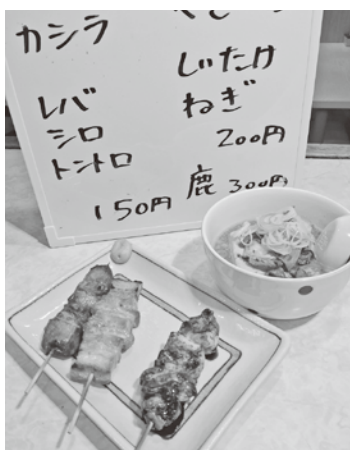 カシラ
レバ
シロ
トントロ
150円
しいたけ
ねぎ
200円
鹿 300円